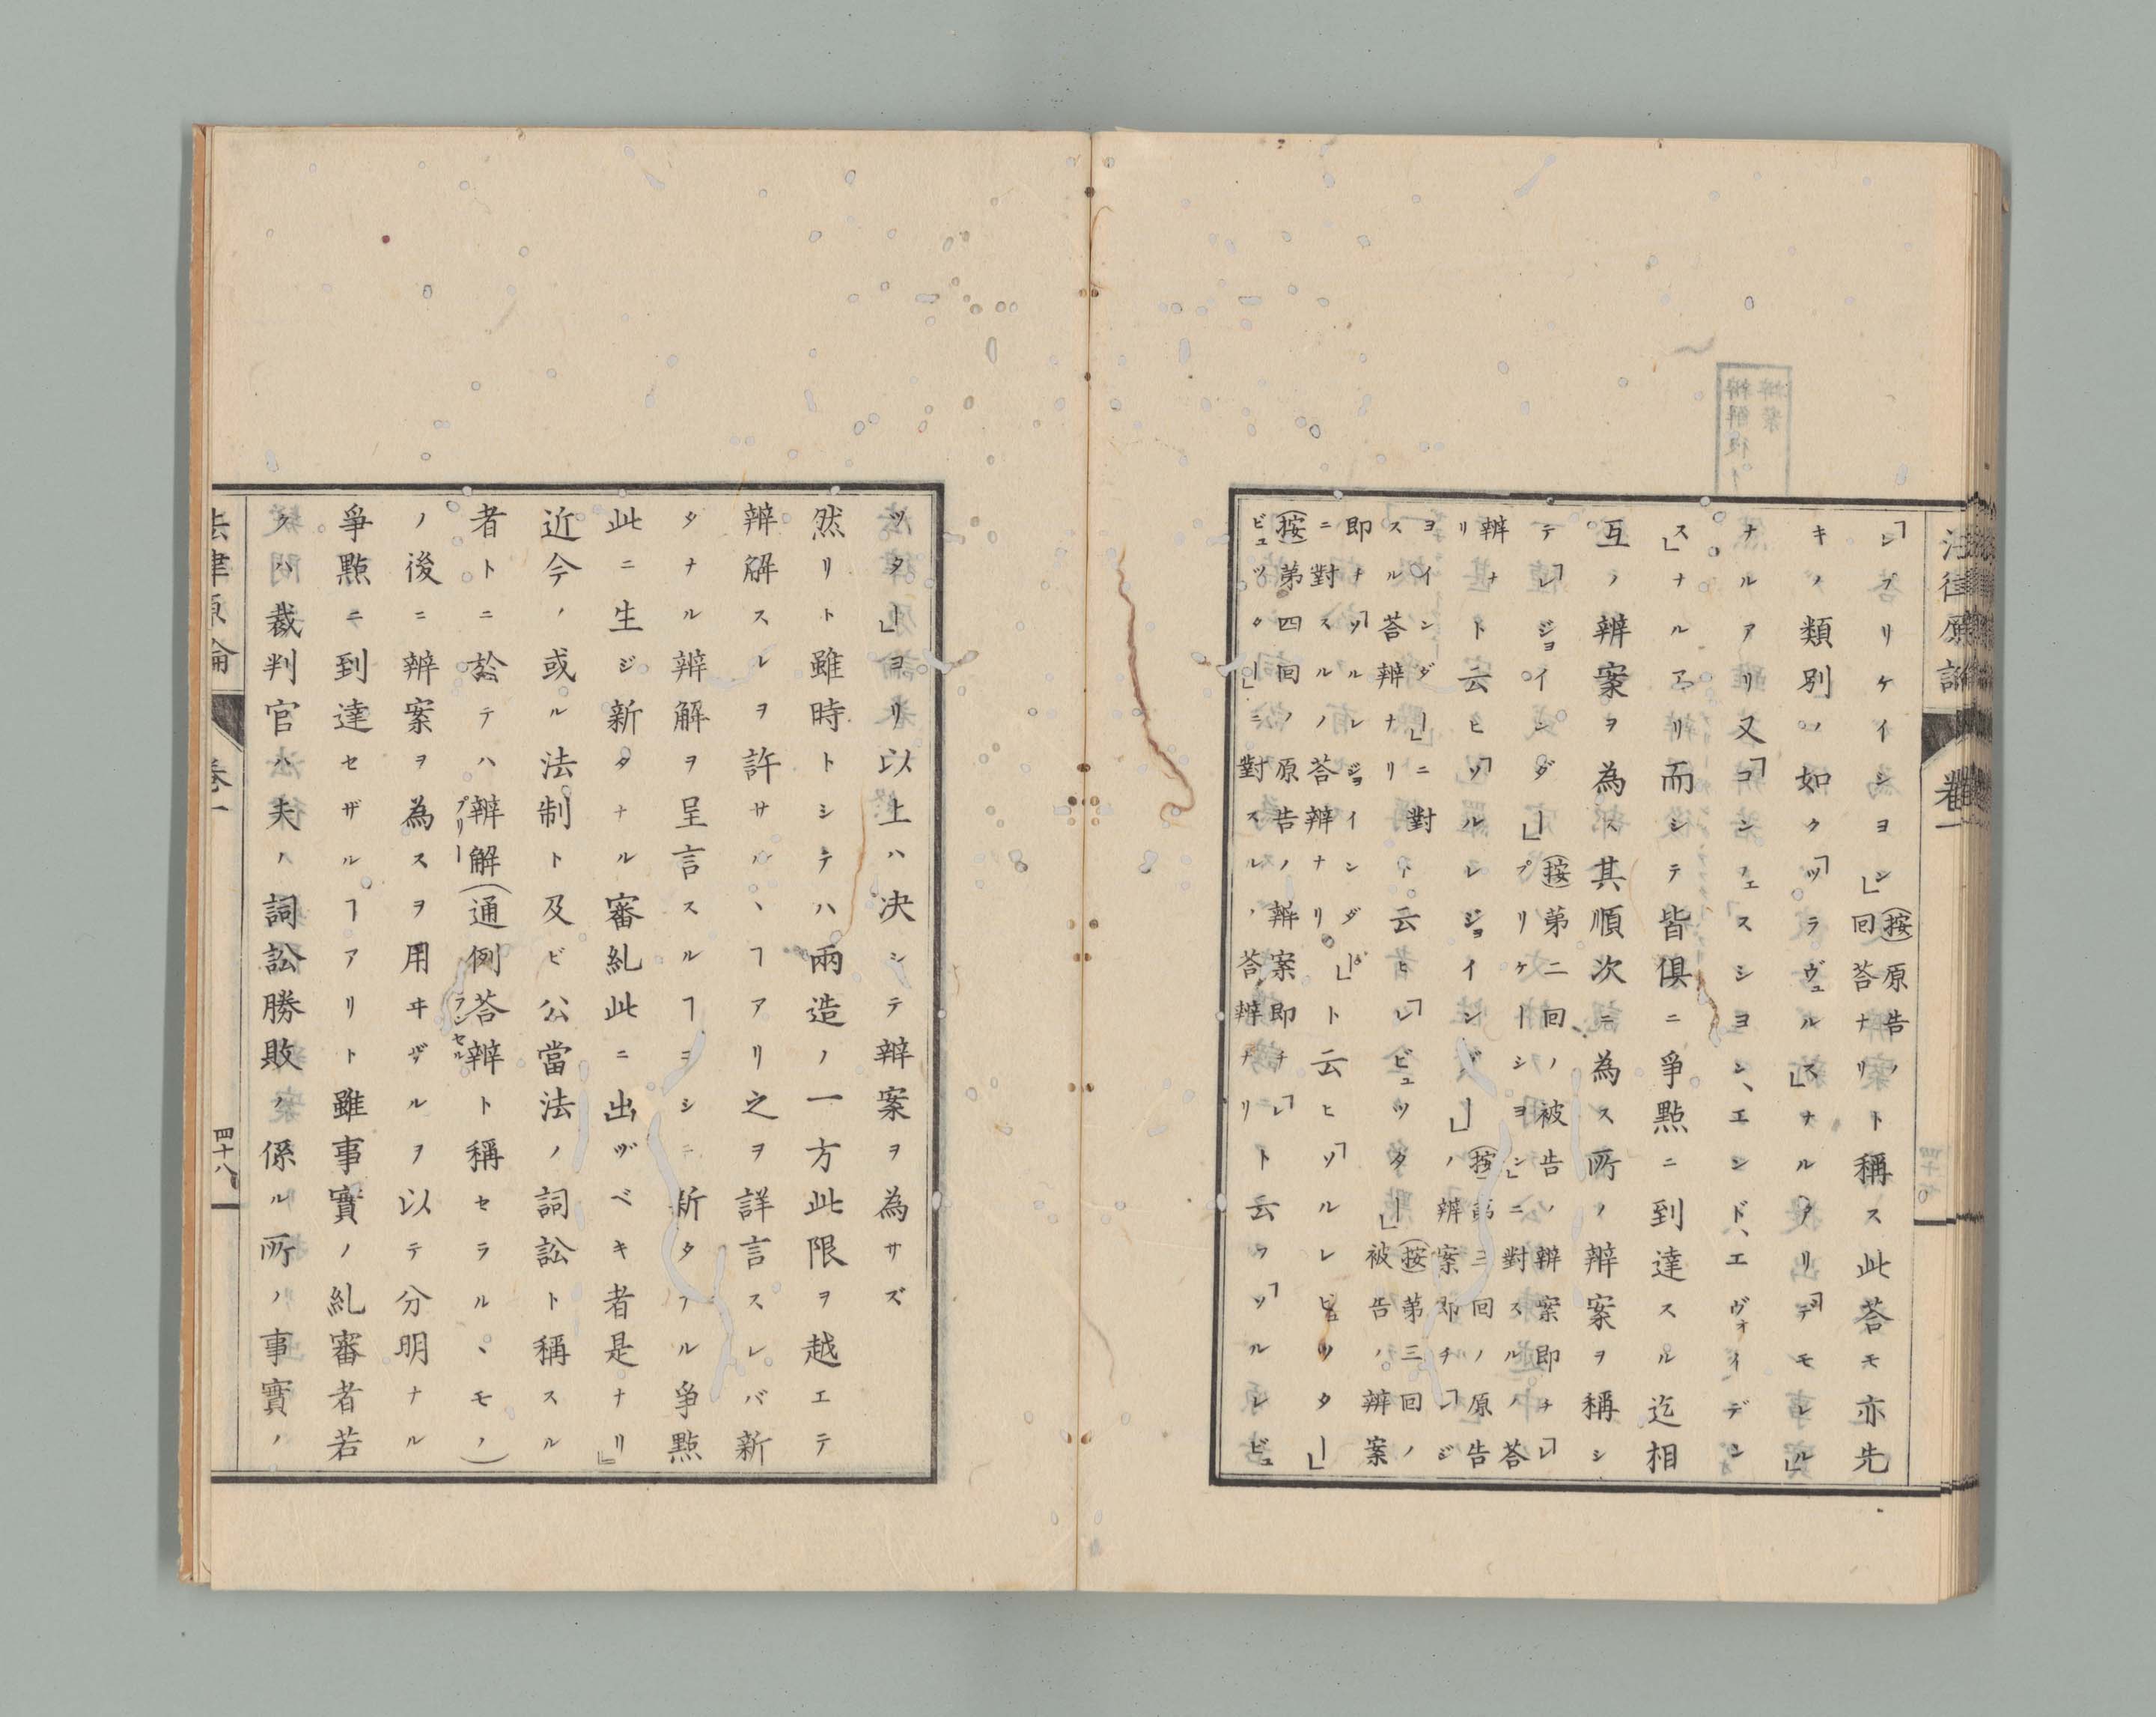 法律原論　卷一
「レプリケイシヨン」(按)原告ノ回荅ナリト稱ス此荅モ亦先
キノ類別ノ如ク「ツラヴュルス」ナルアリ「デモレル」
ナルアリ又「コンフェスシヨン、エンド、エヴォイデン
ス」ナルアリ而シテ皆俱ニ爭點ニ到達スル迄相
互ノ辨案ヲ為ス其順次ニ為ス所ノ辨案ヲ稱シ
テ「レジョインダー」(按)第二回ノ被告ノ辨案即チ「レプリケーシヨン」ニ對スルノ荅
辨ナリト云ヒ「ソルレジョインダー」(按)第三回ノ原告ノ辨案即チ「レジ
ヨインダー」ニ對スル荅辨ナリト云ヒ「レビュツター」(按)第三回ノ被告ノ辨案
即チ「ソルレジョインダー」ニ對スルノ荅辨ナリト云ヒ「ソルレビュツター」
(按)第四回ノ原告ノ辨案即チ「レビュツター」ニ對スルノ荅辨ナリト云フ「ソルレビュ
ツター」ヨリ以上ハ决シテ辨案ヲ為サズ
然リト雖時トシテハ兩造ノ一方此限ヲ越エテ
辨解スレヲ許サルヽヿアリ之ヲ詳言スレバ新
タナル辨解ヲ呈言スルヿヨシ新タナル爭點
此ニ生ジ新タナル審糺此ニ出ヅベキ者是ナリ」
近今ノ或ル法制ト及ビ公當法ノ詞訟ト稱スル
者トニ於テハ辨解プリー(通例荅辨ランセルト稱セラルヽモノ)
ノ後ニ辨案ヲ為スヲ用ヰザルヲ以テ分明ナル
爭點ニ到達セザルヿアリト雖事實ノ糺審者若
クハ裁判官ハ夫ノ詞訟勝敗ノ係ル所ノ事實ノ
法律原論　卷一　四十八